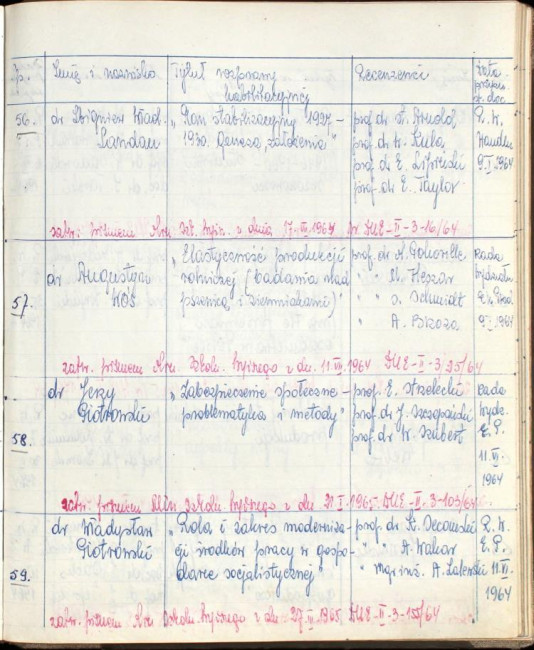 Imię i nazwisko
Tytuł rozprawy habilitacyjnej
Recenzenci
Data
st. doc.
56.
dr Zbigniew
Landau
„Plan stabilizacyjny 1927-
1930. Geneza, założenia"
prof. dr
prof. dr W. Kula
prof. dr E. Lipiński
prof. dr E. Taylor
R. W.
Handlu
9.I.1964
zatw. pismem Min. Szk. Wyższ. z dnia 17. 1964 nr DUE-II-3-16/64
57.
dr Augustyn
Woś
„Elastyczność produkcji
rolniczej (badania nad
pszenicą i ziemniakami)"
prof. dr
" " M. Pleszar
" " Schmidt
" A. Brzoza
Rada
Wydziału
1964
zatw. pismem Min. Szkoln. Wyższego z dn. 11. 1964 DUE-II-3/25/64
58.
dr Jerzy
Piotrowski
„Zabezpieczenie społeczne -
problematyka i metody"
prof. E. Strzelecki
prof. dr J. Szczepański
prof. dr W. Szubert
Rada
Wydz.
E. P.
1964
zatw. pismem Min. Szkoln. Wyższego z dn. 21.I.1965 DUE-II-3-103/64
59.
dr Władysław
Piotrowski
„Rola i zakres moderniza-
cji środków pracy w gospo-
darce socjalistycznej"
prof. dr K. Secomski
" " A. Wakar
" mgr inż. A.
R. W.
E. P.
1964
zatw. pismem Min. Szkoln. Wyższego z dn. 1965, DUE-II-3-155/64